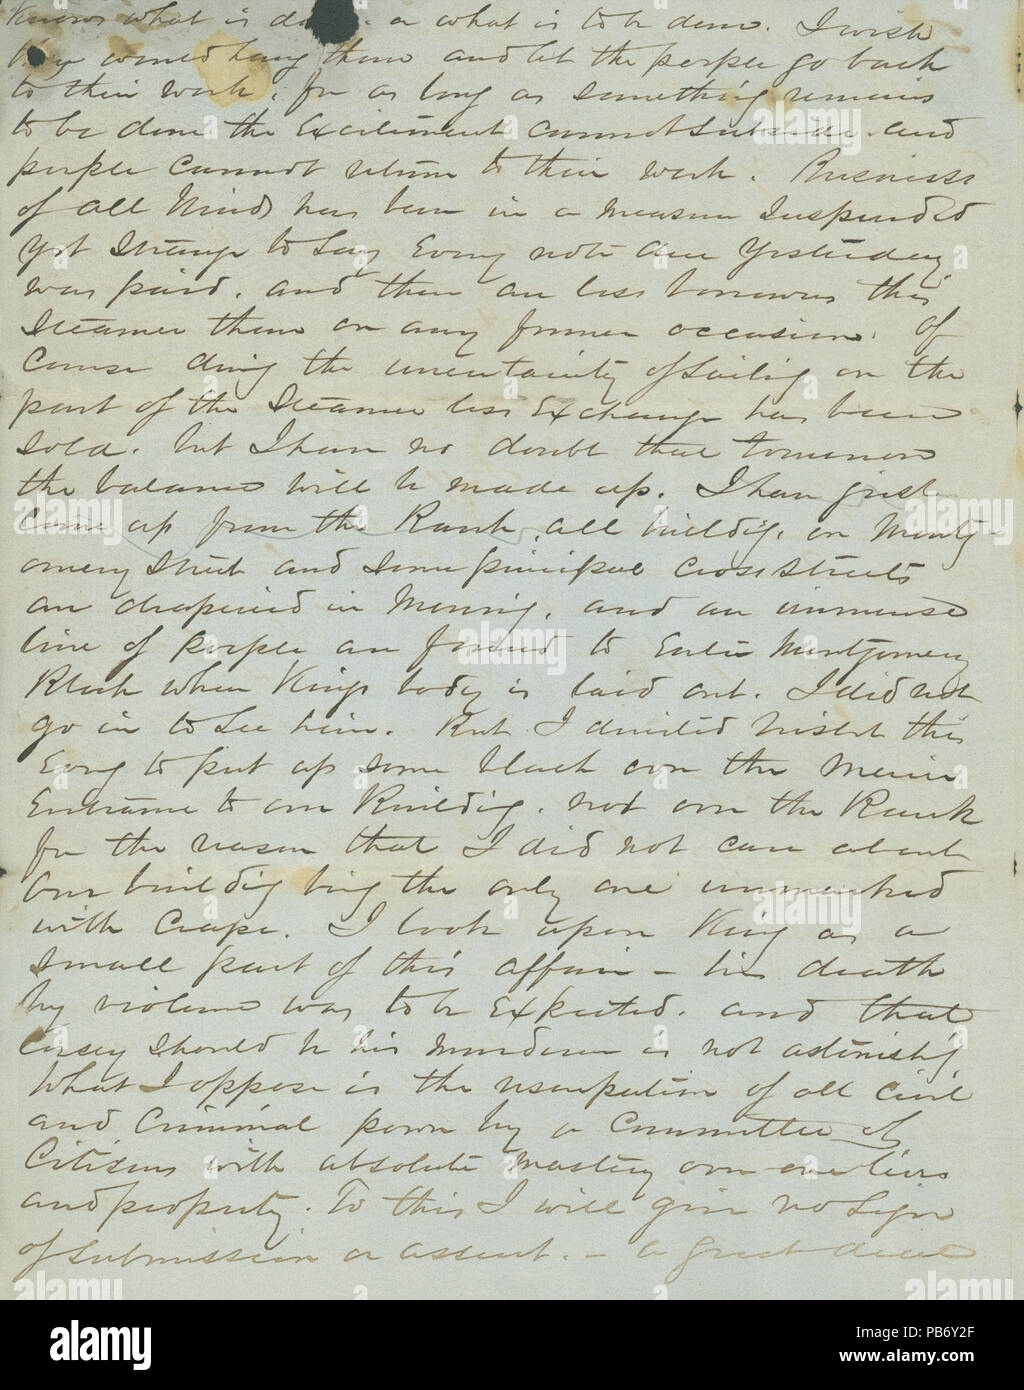 knows what is done or what is to be done. I wish
they would hang them and let the people go back
to their work, for as long as something remains
to be done the Excitement cannot subside and
people cannot return to their work. Business
of all kinds has been in a measure suspended
yet strange to say Every note due yesterday
was paid, and there are less borrowers this
Steamer than on any former occasion. Of
Course during the uncertainty of sailing on the
part of the Steamer less Exchange has been
sold, but I have no doubt that tomorrow
the balance will be made up. I have just
come up from the Bank, all buildings on Montg-
omery Street and some principal Cross Streets
are draped in Mourning, and an immense
line of people are formed to Enter Montgomery
Block where Kings body is laid out. I did not
go in to see him. But I directed Nisbet this
Evng to put up some black over the Main
Entrance to our Building, not over the Bank
for the reason that I did not care about
our building being the only one unmarked
with Crape. I look upon King as a
small part of this affair – his death
by violence was to be Expected, and that
Casey should be his murderer is not astonishing
What I oppose is the usurpation of all Civil
and Criminal power by a Committee of
Citizens with absolute mastery over our lives
and property. To this I will give no sign
of submission or assent. – a great deal
alamy
alamy
Image ID: PB6Y2F
www.alamy.com